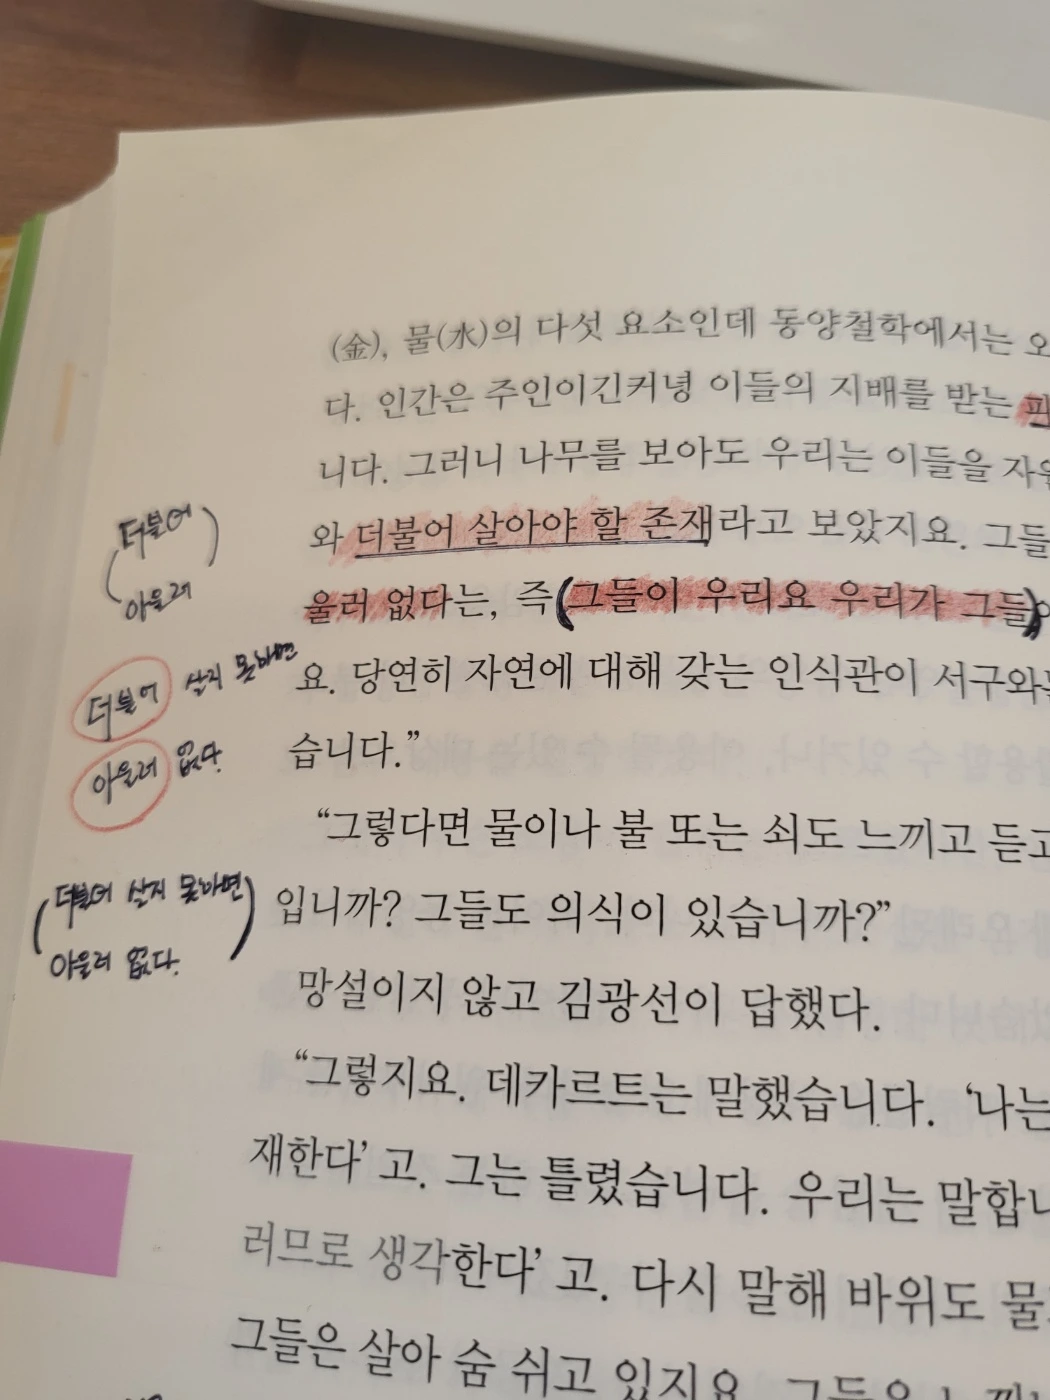 (金), 물(水)의 다섯 요소인데 동양철학에서는 오
다. 인간은 주인이긴커녕 이들의 지배를 받는 피
니다. 그러니 나무를 보아도 우리는 이들을 자원
와 더불어 살아야 할 존재라고 보았지요. 그들
울러 없다는, 즉 (그들이 우리요 우리가 그들)
요. 당연히 자연에 대해 갖는 인식관이 서구와는
습니다.”
“그렇다면 물이나 불 또는 쇠도 느끼고 듣고
입니까? 그들도 의식이 있습니까?”
망설이지 않고 김광선이 답했다.
“그렇지요. 데카르트는 말했습니다. ‘나는
재한다’ 고. 그는 틀렸습니다. 우리는 말합니
러므로 생각한다’ 고. 다시 말해 바위도 물
그들은 살아 숨 쉬고 있지요. 그들은 느끼
(더불어)
아울러
더불어 살지 못하면
아울러 없다.
(더불어 살지 못하면)
아울러 없다.